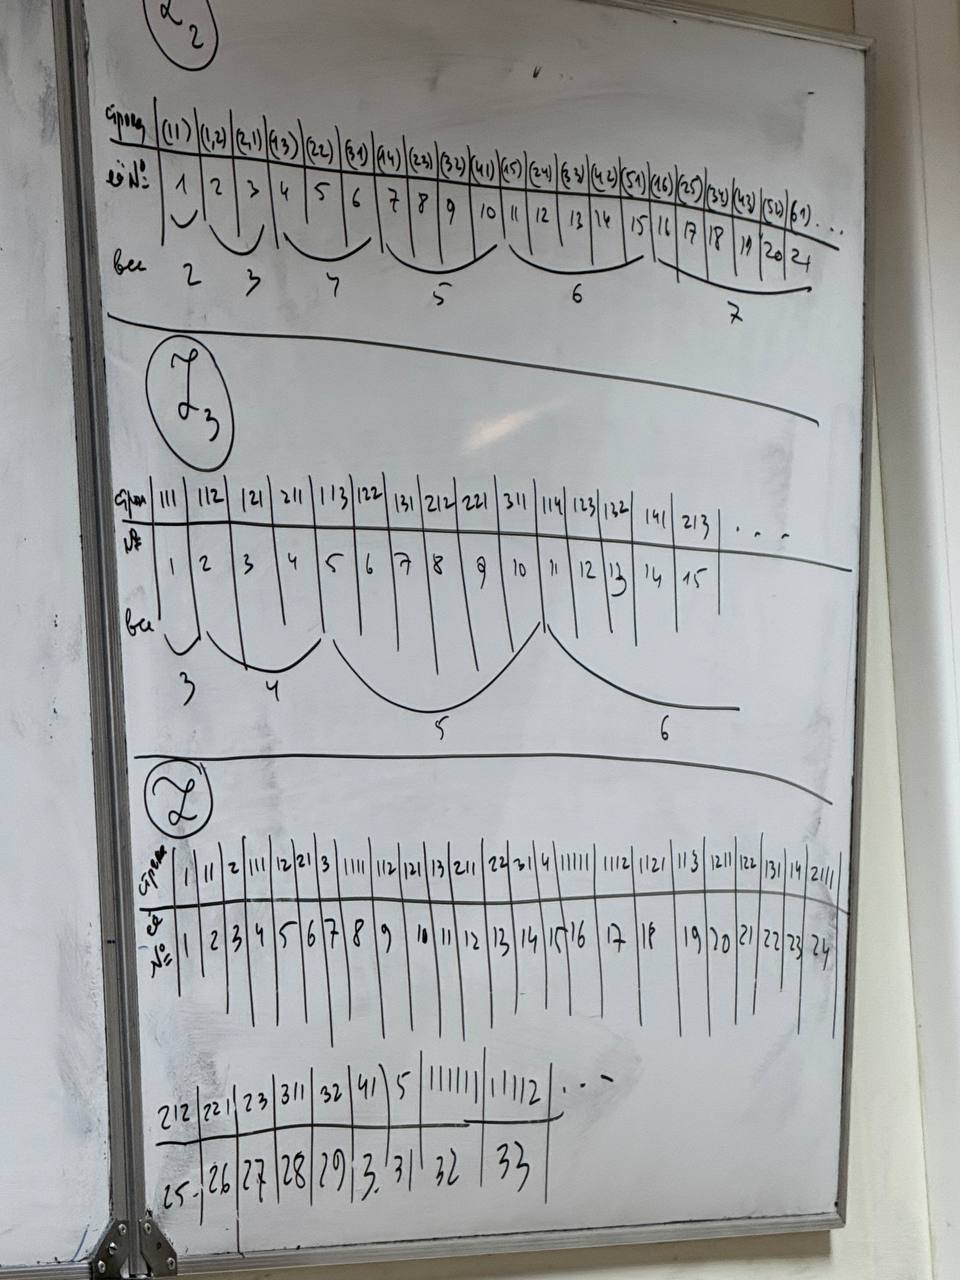 Z₂
строка (11) (1,2) (2,1) (13) (22) (31) (14) (23) (32) (41) (15) (24) (33) (42) (51) (16) (25) (34) (43) (52) (61) ...
её № 1 2 3 4 5 6 7 8 9 10 11 12 13 14 15 16 17 18 19 20 21
вес 2 3 4 5 6 7
Z₃
строка 111 112 121 211 113 122 131 212 221 311 114 123 132 141 213 ...
№ 1 2 3 4 5 6 7 8 9 10 11 12 13 14 15
вес 3 4 5 6
Z
строка 1 11 2 111 12 21 3 1111 112 121 13 211 22 31 4 11111 1112 1121 113 1211 122 131 14 2111
её № 1 2 3 4 5 6 7 8 9 10 11 12 13 14 15 16 17 18 19 20 21 22 23 24
212 221 23 311 32 41 5 111111 11112 ...
25 26 27 28 29 3. 31 32 33